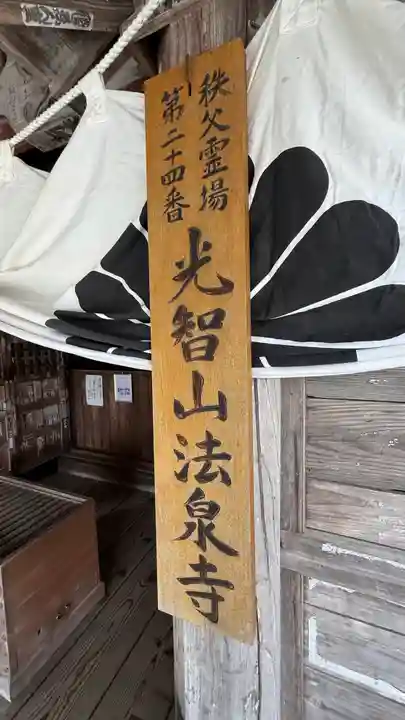 秩父霊場
第二十四番
光智山法泉寺